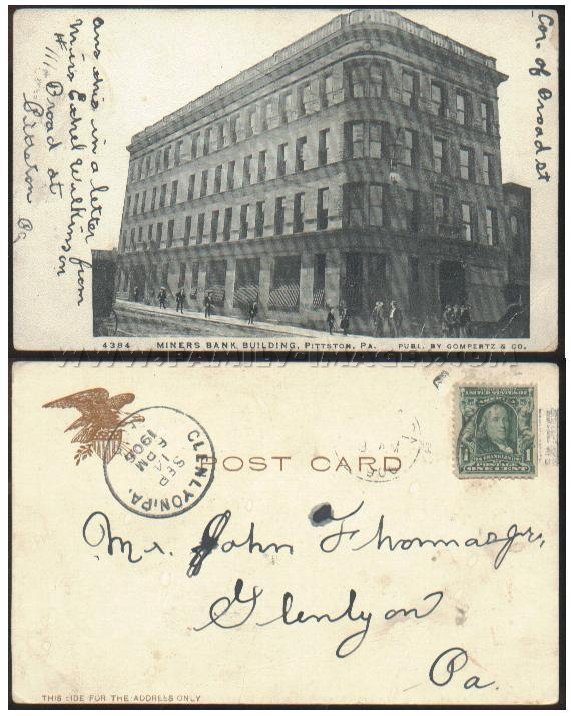 Cor. of Broad st
ans this in a letter
Miss Ethel Wilkinson from
#111 Broad st
Pittston Pa
4384 MINERS BANK BUILDING, PITTSTON, PA. PUBL. BY GOMPERTZ & CO.
WWW.FAMILY-IMAGES.COM
POST CARD
GLENLYON, PA.
SEP
1 PM
1906
UNITED STATES OF
FRANKLIN
1 POSTAGE 1
ONE CENT
Mr. John Thomas Jr,
Glenlyon
Pa.
THIS SIDE FOR THE ADDRESS ONLY